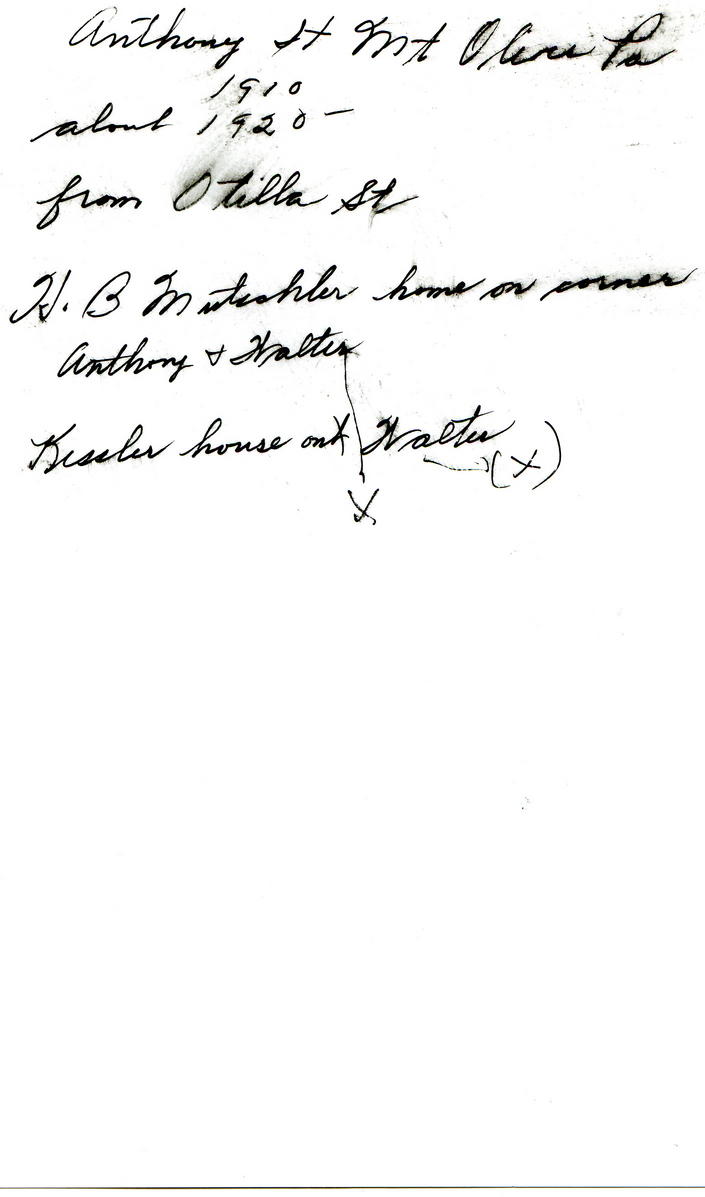 Anthony St Mt Oliver Pa
1910
about 1920 –
from Otilla St
H. B Mutschler home on corner
Anthony + Walter
Kessler house on Walter
(X)
X